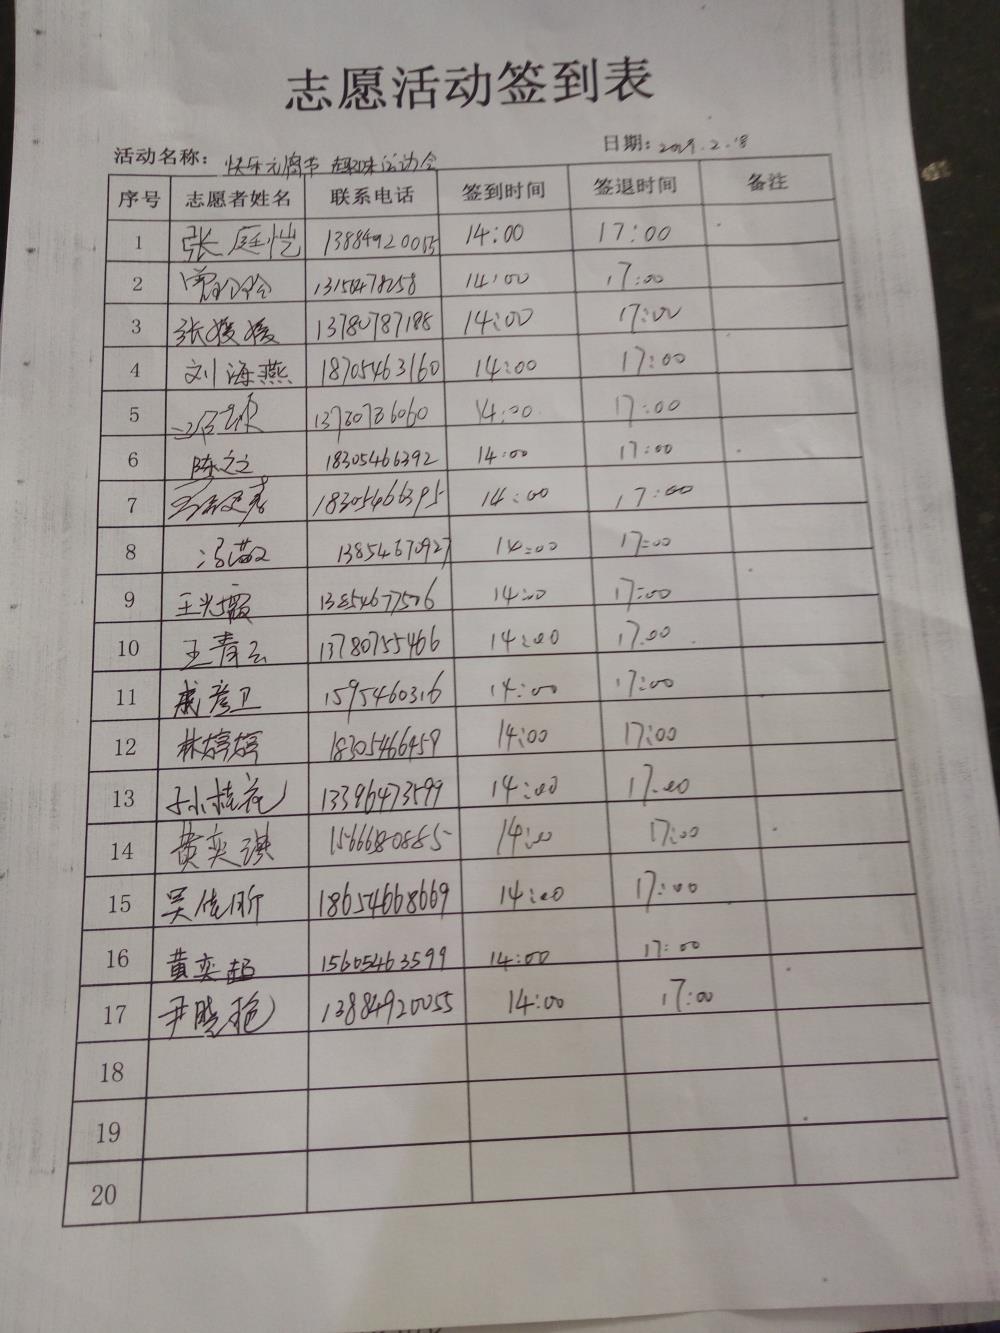 志愿活动签到表
活动名称：快乐元宵节 趣味运动会 日期：2019.2.18
序号 志愿者姓名 联系电话 签到时间 签退时间 备注
1 张庭恺 13884920055 14:00 17:00
2 14:00 17:00
3 张媛媛 13780787188 14:00 17:00
4 刘海燕 18705463160 14:00 17:00
5 14:00 17:00
6 陈文文 18305466392 14:00 17:00
7 18305466395 14:00 17:00
8 冯敬 13854670927 14:00 17:00
9 王光霞 13854677506 14:00 17:00
10 王青云 13780755466 14:00 17:00
11 戚彦卫 1595460316 14:00 17:00
12 林婷婷 18305466459 14:00 17:00
13 孙桂花 13396473599 14:00 17:00
14 黄奕琪 15666880885 14:00 17:00
15 吴佳昕 18654668669 14:00 17:00
16 黄奕超 15605463599 14:00 17:00
17 尹晓艳 13884920055 14:00 17:00
18
19
20